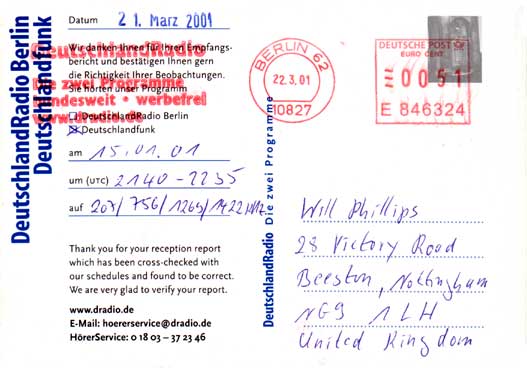 DeutschlandRadio Berlin
Deutschlandfunk
Datum 21. März 2001
Wir danken Ihnen für Ihren Empfangs-
bericht und bestätigen Ihnen gern
die Richtigkeit Ihrer Beobachtungen.
Sie hörten unser Programm
DeutschlandRadio Berlin
Deutschlandfunk
am 15.01.01
um (UTC) 2140 - 2235
auf 207/756/1269/1422 kHz
Thank you for your reception report
which has been cross-checked with
our schedules and found to be correct.
We are very glad to verify your report.
www.dradio.de
E-Mail: hoererservice@dradio.de
HörerService: 0 18 03 – 37 23 46
DeutschlandRadio
Die zwei Programme
bundesweit • werbefrei
www.dradio.de
DeutschlandRadio Die zwei Programme
BERLIN 62
22.3.01
10827
DEUTSCHE POST
EURO CENT
0051
E 846324
Will Phillips
28 Victory Road
Beeston, Nottingham
NG9 1LH
United Kingdom